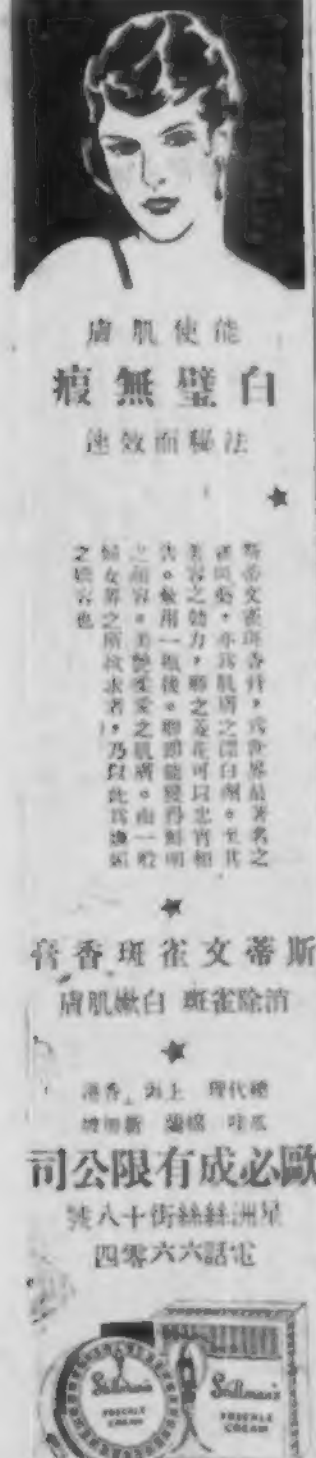 能使肌膚
白璧無痕
法秘而效速
斯蒂文雀斑香膏，為世界最著名之
亦為肌膚之漂白劑。至其
美容之効力，之菱花可以忠實相
告。用一瓶後。即能變得鮮明
之顏容。美艷柔愛之肌膚。而一般
婦女界之所欲求者，乃以此為嫵媚
之嬌容也
斯蒂文雀斑香膏
消除雀斑 白嫩肌膚
總代理 上海 香港
歐必成有限公司
星洲絲絲街十八號
電話六六零四
Stillman's
FRECKLE
CREAM
Stillman's
FRECKLE
CREAM